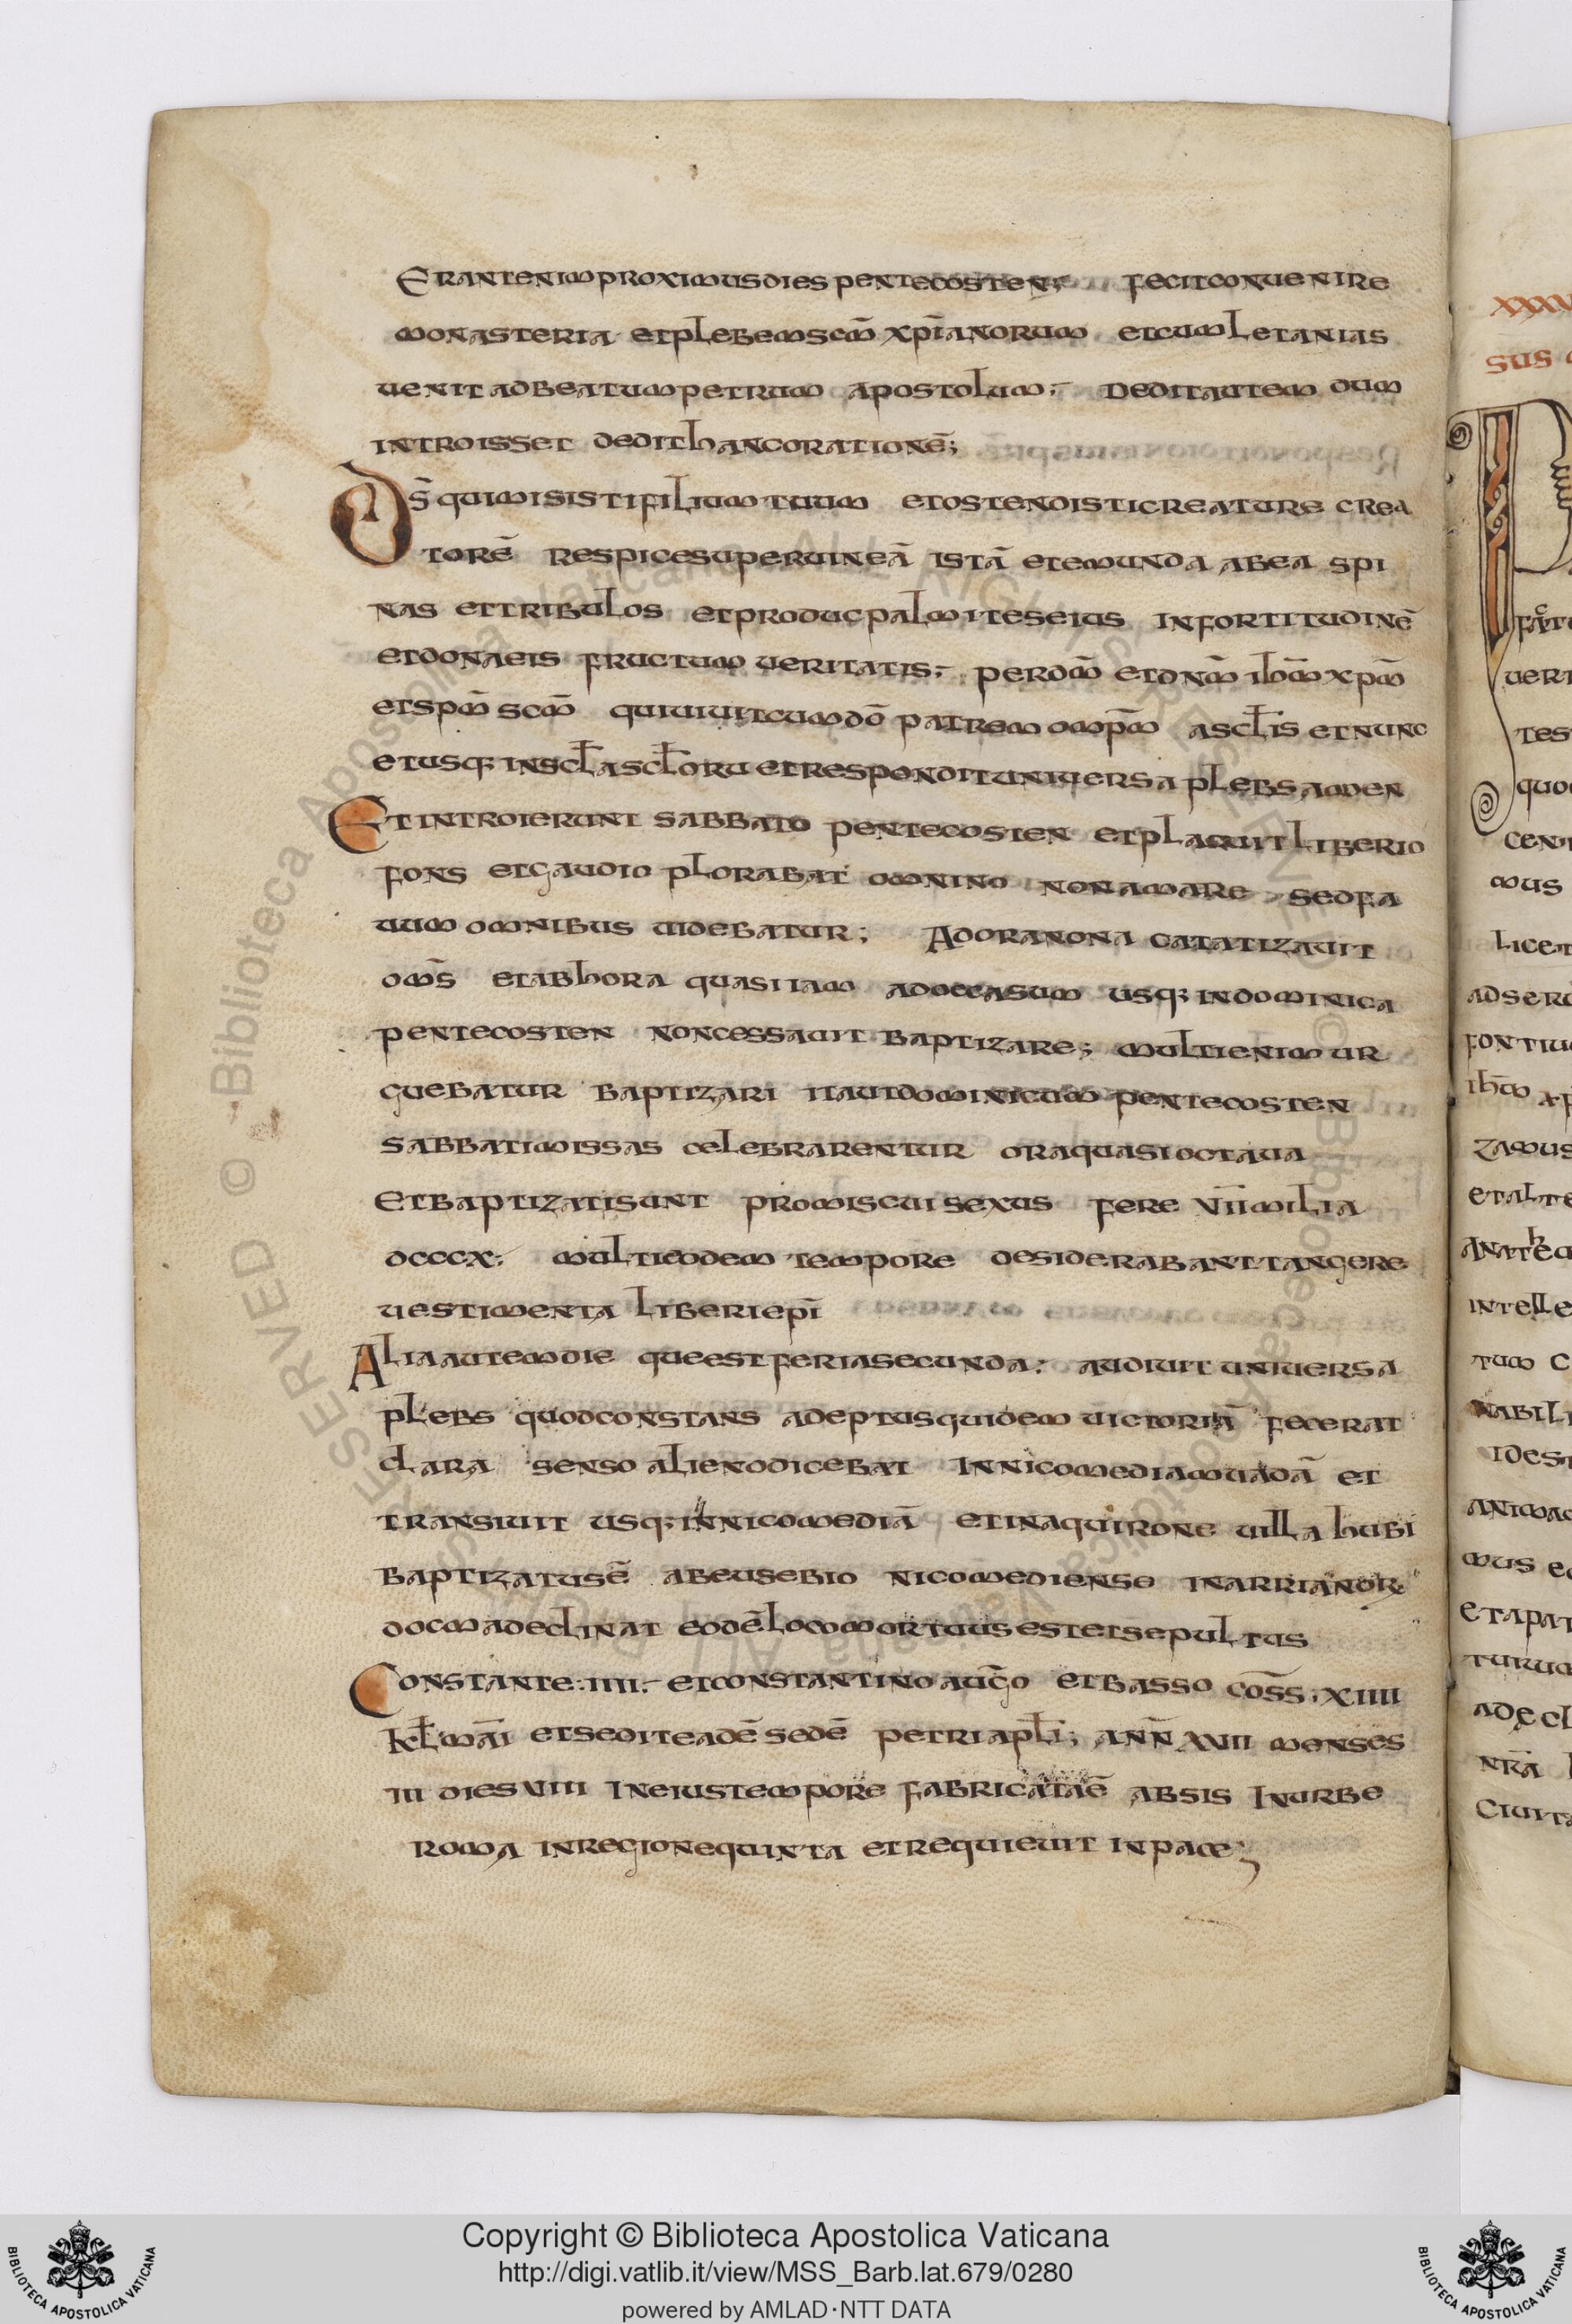 Erantenimproximusdies pentecosten; fecitconuenire
monasteria etplebemscm̄ xp̄ianorum etcumletanias
uenit adbeatumpetrum apostolum; Deditautem dum
introisset dedithancorationē;
Ds̄ quimisistifiliumtuum etostendisticreature crea
torē respicesuperuineā istā etemunda abea spi
nas ettribulos etproduc palmiteseius infortitudinē
etdonaeis fructum ueritatis; perdm̄ etdnm̄ ihm̄ xpm̄
etspm̄ scm̄ quiuiuitcumdō patrem omp̄m asclis etnunc
etusq; insclasclorū etrespondituniuersa plebs amen
Etintroierunt sabbato pentecosten etplacuit liberio
fons etgaudio plorabat omnino nonamare sedfa
uum omnibus uidebatur; Adoranona catatizauit
oms̄ etabhora quasiiam adoccasum usq; indominica
pentecosten noncessauit baptizare; multienim ur
guebatur baptizari itautdominicum pentecosten
sabbatimissas celebrarentur oraquasioctaua
Etbaptizatisunt promiscui sexus fere VIImilia
dcccx; multieodem tempore desiderabanttangere
uestimenta liberiepī
Aliaautemdie queestferiasecunda; audiuit uniuersa
plebs quodconstans adeptusquidem uictoriā fecerat
clara senso alienodicebat Innicomediamuadā et
transiuit usq; innicomediā etinaquirone uilla hubi
baptizatusē abeusebio nicomediense inarrianor
docmadeclinat eodēlocomortuusestetsepultus
Constante. iiii. etconstantino augo etbasso coss; xiiii
kl māi etsediteadē sedē petriapli; anñ xvii menses
iii dies viiii Ineiustempore fabricataē absis Inurbe
roma inregionequinta etrequieuit inpace;
xxxv
sus
uert
tes
quod
cent
mus
licet
adseru
fontiu
ihm̄ xp
zamus
etalte
anathe
intelle
tum c
nabili
Idest
animad
mus
etapat
turum
adecl
nrā
Ciuita
Copyright © Biblioteca Apostolica Vaticana
http://digi.vatlib.it/view/MSS_Barb.lat.679/0280
powered by AMLAD·NTT DATA
BIBLIOTECA APOSTOLICA VATICANA
BIBLIOTECA APOSTOLICA VATICANA